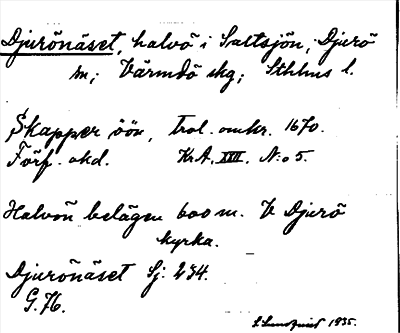 Djurönäset, halvö i Saltsjön, Djurö
sn; Värmdö skg; Sthlms l.
Skapper öön, trol. omkr. 1670.
Förf. okd. KrA. XXII. N:o 5.
Halvön belägen 600 m. V Djurö
kyrka.
Djurönäset Sj: 234.
G. 76.
1935.